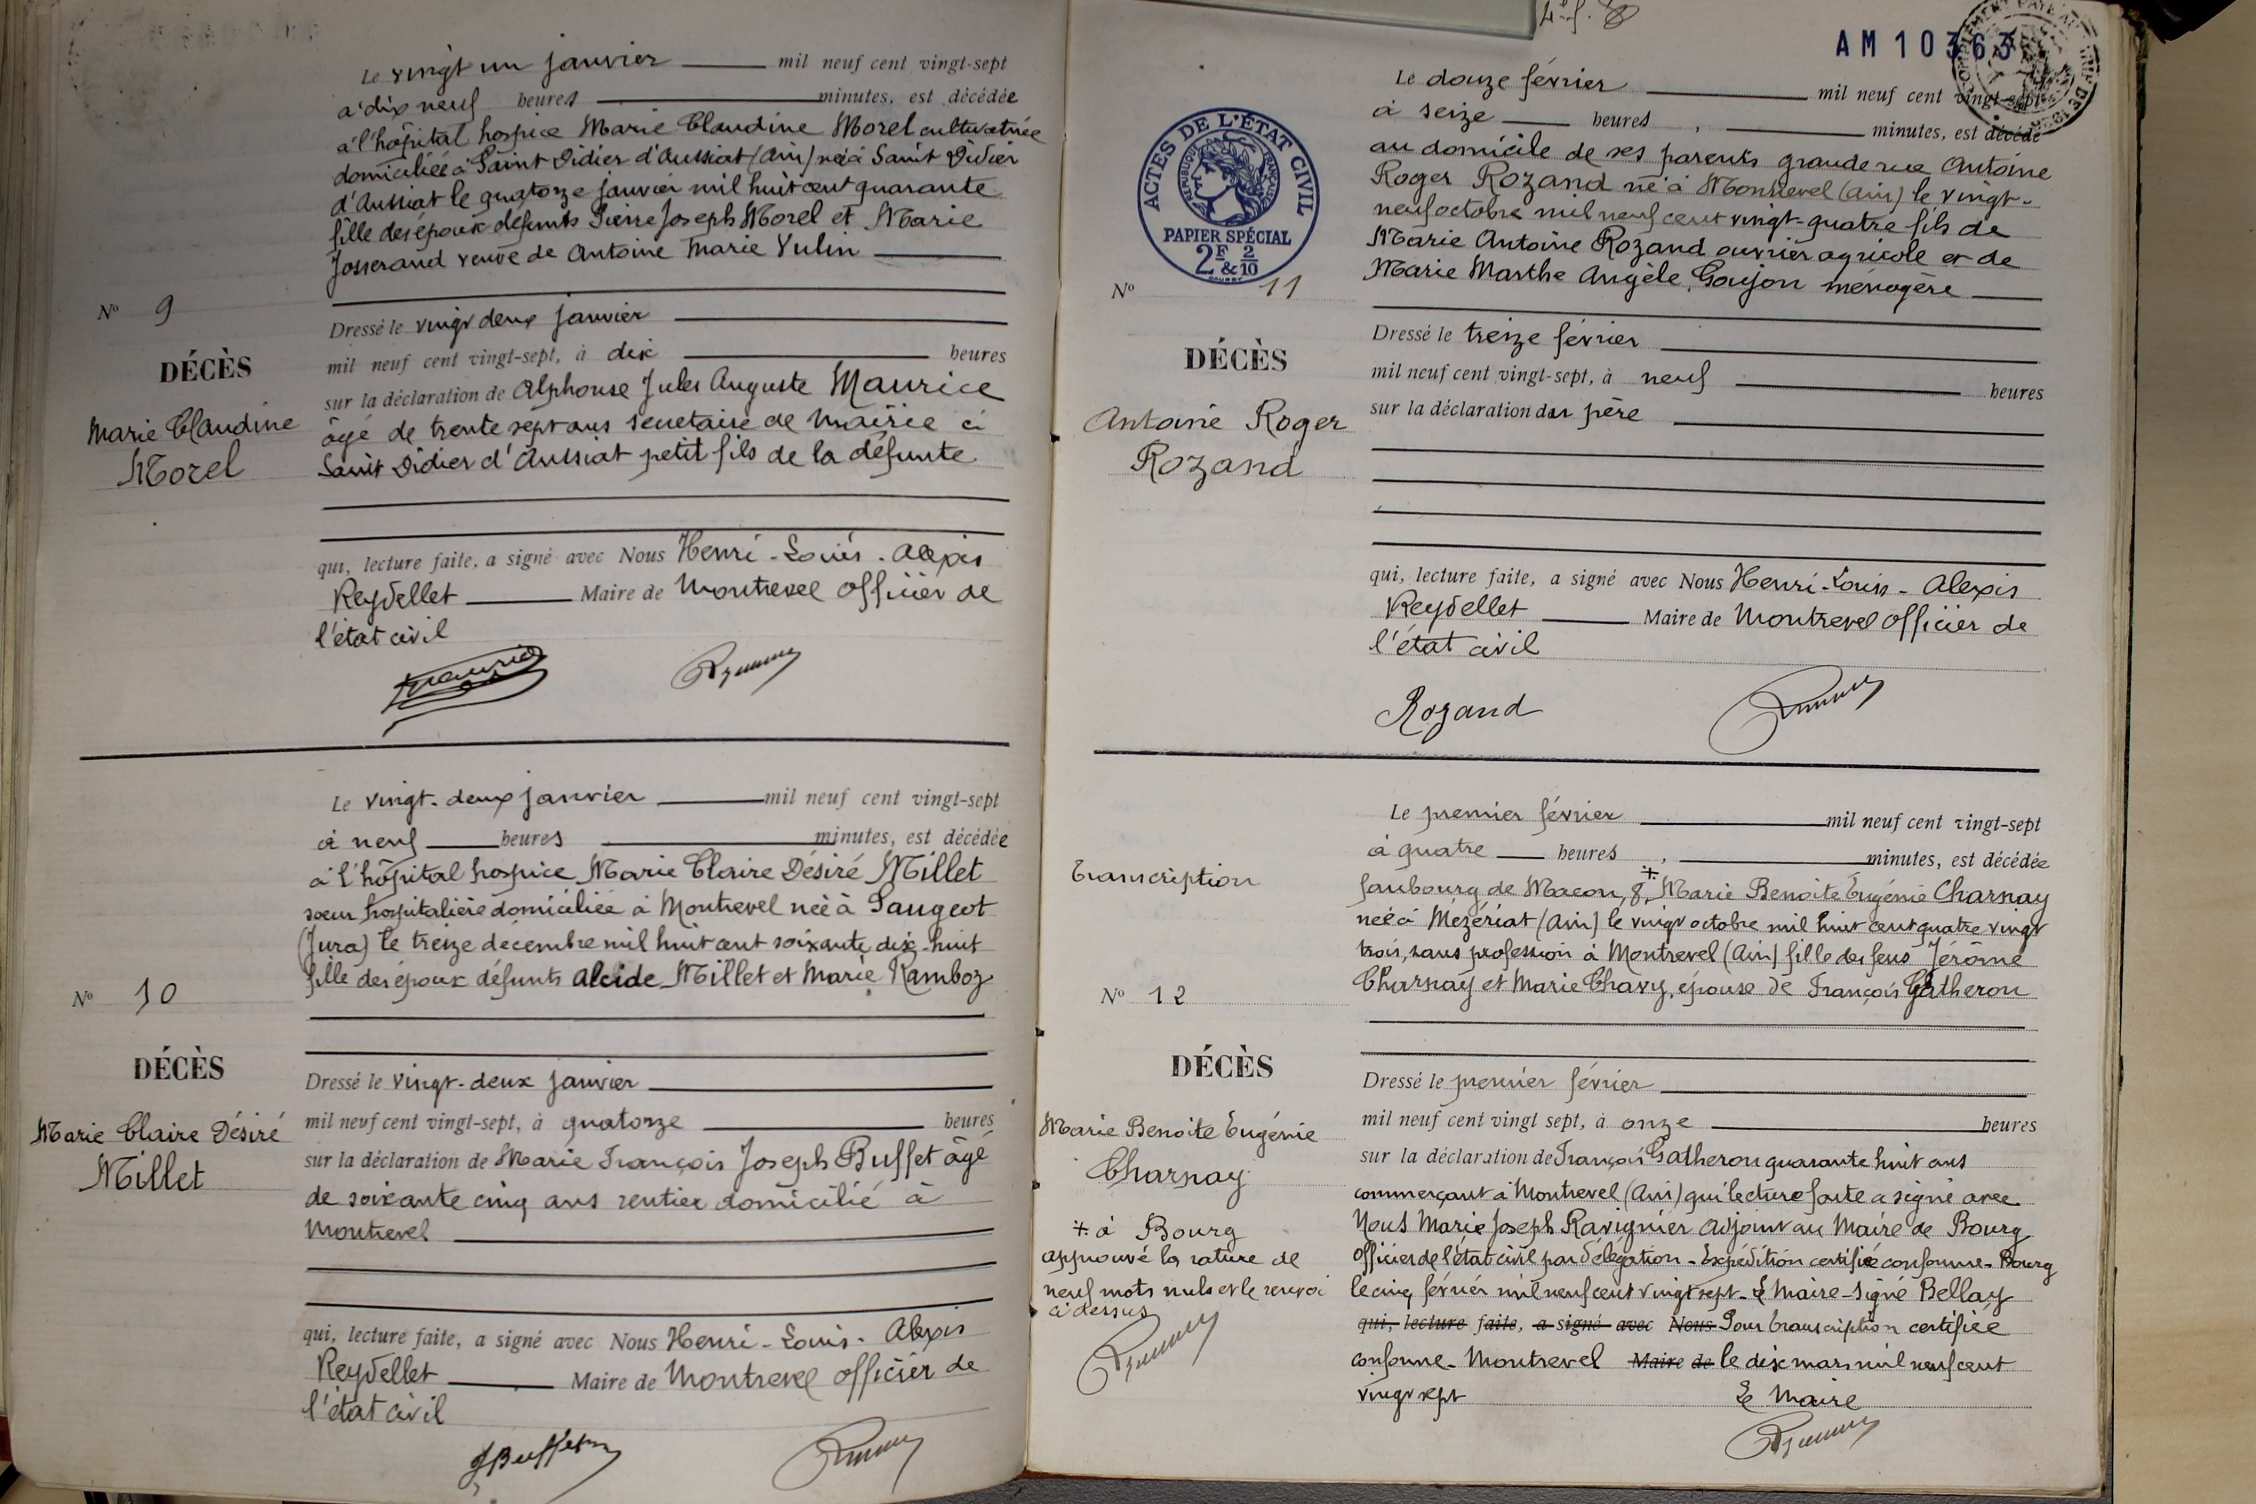 Le vingt un janvier mil neuf cent vingt-sept
à dix neuf heures minutes, est décédée
à l'hôpital hospice Marie Claudine Morel cultivatrice
domiciliée à Saint Didier d'Aussiat (Ain) née à Saint Didier
d'Aussiat le quatorze janvier mil huit cent quarante
fille des époux défunts Pierre Joseph Morel et Marie
Josserand veuve de Antoine Marie Vulin
No 9
DÉCÈS
Marie Claudine
Morel
Dressé le vingt deux janvier
mil neuf cent vingt-sept, à dix heures
sur la déclaration de Alphonse Jules Auguste Maurice
âgé de trente sept ans secrétaire de mairie à
Saint Didier d'Aussiat petit fils de la défunte
qui, lecture faite, a signé avec Nous Henri-Louis-Alexis
Reydellet Maire de Montrevel officier de
l'état civil
Maurice
Le vingt-deux janvier mil neuf cent vingt-sept
à neuf heures minutes, est décédée
à l'hôpital hospice Marie Claire Désiré Millet
soeur hospitalière domiciliée à Montrevel née à Saugeot
(Jura) le treize décembre mil huit cent soixante dix-huit
fille des époux défunts Alcide Millet et Marie Ramboz
No 10
DÉCÈS
Marie Claire Désiré
Millet
Dressé le vingt-deux janvier
mil neuf cent vingt-sept, à quatorze heures
sur la déclaration de Marie François Joseph Buffet âgé
de soixante cinq ans rentier domicilié à
Montrevel
qui, lecture faite, a signé avec Nous Henri-Louis-Alexis
Reydellet Maire de Montrevel officier de
l'état civil
J Buffet
AM 10363
ACTES DE L'ÉTAT CIVIL
RÉPUBLIQUE FRANÇAISE
PAPIER SPÉCIAL
2F & 2/10
Le douze février mil neuf cent vingt-sept
à seize heures, minutes, est décédé
au domicile de ses parents grande rue Antoine
Roger Rozand né à Montrevel (Ain) le vingt-
neuf octobre mil neuf cent vingt-quatre fils de
Marie Antoine Rozand ouvrier agricole et de
Marie Marthe Angèle Goujon ménagère
No 11
DÉCÈS
Antoine Roger
Rozand
Dressé le treize février
mil neuf cent vingt-sept, à neuf heures
sur la déclaration du père
qui, lecture faite, a signé avec Nous Henri-Louis-Alexis
Reydellet Maire de Montrevel officier de
l'état civil
Rozand
Transcription
Le premier février mil neuf cent vingt-sept
à quatre heures, minutes, est décédée
faubourg de Macon, 8, + Marie Benoite Eugénie Charnay
née à Mézériat (Ain) le vingt octobre mil huit cent quatre vingt
trois, sans profession à Montrevel (Ain) fille des feus Jérôme
Charnay et Marie Chavy, épouse de François Gatheron
No 12
DÉCÈS
Marie Benoite Eugénie
Charnay
+ à Bourg
approuvé la rature de
neuf mots nuls et le renvoi
ci dessus
Dressé le premier février
mil neuf cent vingt sept, à onze heures
sur la déclaration de François Gatheron quarante huit ans
commerçant à Montrevel (Ain) qui lecture faite a signé avec
Nous Marie Joseph Ravignier adjoint au Maire de Bourg
Officier de l'état civil par délégation - Expédition certifiée conforme - Bourg
le cinq février mil neuf cent vingt sept - Le Maire - signé Bellay
qui, lecture faite, a signé avec Nous Pour transcription certifiée
conforme - Montrevel Maire de le dix mars mil neuf cent
vingt sept Le Maire